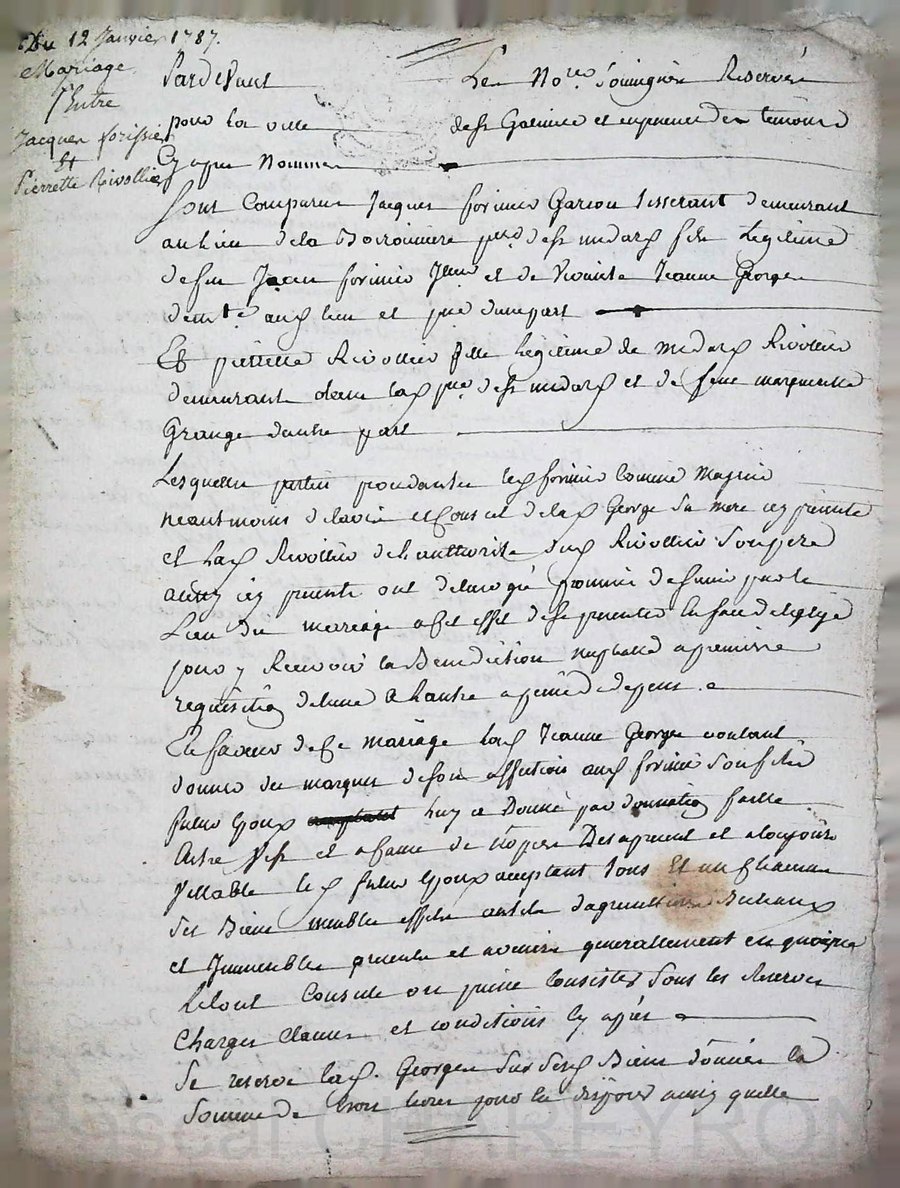 Du 12 Janvier 1787.
Mariage
Entre
Jacques forissier
Et
Pierrette Rivollier
Pardevant Les No.res Soussignés Reservés
pour la ville de St Galmier et en presence des temoins
Cy apres Nommés
Sont Comparus Jacques forissier Garcon tisserant demeurant
au lieu de la psse de St medard fils Legitime
de feu Jean forissier et de vivante Jeanne George
demte aud lieu et psse dune part
Et pierrette Rivollier fille Legitime de medard Rivollier
demeurant dans lad psse de St medard et de feue marguerite
Grange dautre part
Lesquelles parties led forissier Comme Majeur
neantmoins de lavis et Conseil de lad George Sa mere icy presente
et lad Rivollier de lauthorité dud Rivollier Son pere
aussy icy present ont promis de sunir par le
Lien du mariage a cet effet de se presenter en face de leglise
pour y Recevoir la Benediction nuptiale a premiere
requisition de lune a Lautre a peine de depens
En faveur de Ce mariage lad Jeanne George voulant
donner des marques de son affection aud forissier Son fils
futur Epoux luy a Donné par donnation faitte
Entre vifs et a cause de Noces Des apresent et a toujours
Vallable led futur Epoux acceptant tous Et un Chacun
Ses Biens meubles effets outils dagriculture Bestiaux
et Immeubles presents et avenirs generallement en quoy que
Le tout Consiste ou puisse Consister Sous les Reserves
Charges Clauses et conditions Cy après
Se reserve lad. George Sur Sesd Biens donnés la
Somme de trois livres pour en disposer ainsy quelle
Pascal CHAREYRON